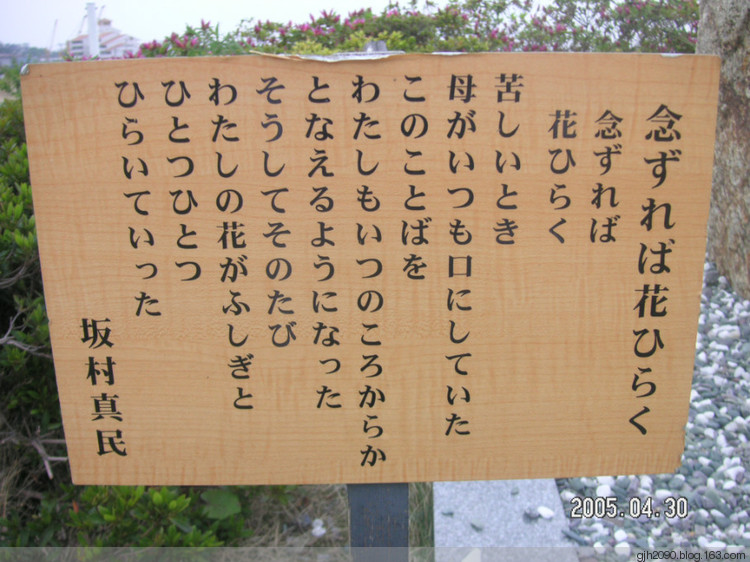 念ずれば花ひらく
念ずれば
花ひらく
苦しいとき
母がいつも口にしていた
このことばを
わたしもいつのころからか
となえるようになった
そうしてそのたび
わたしの花がふしぎと
ひとつひとつ
ひらいていった
坂村真民
2005.04.30
gjh2090.blog.163.com